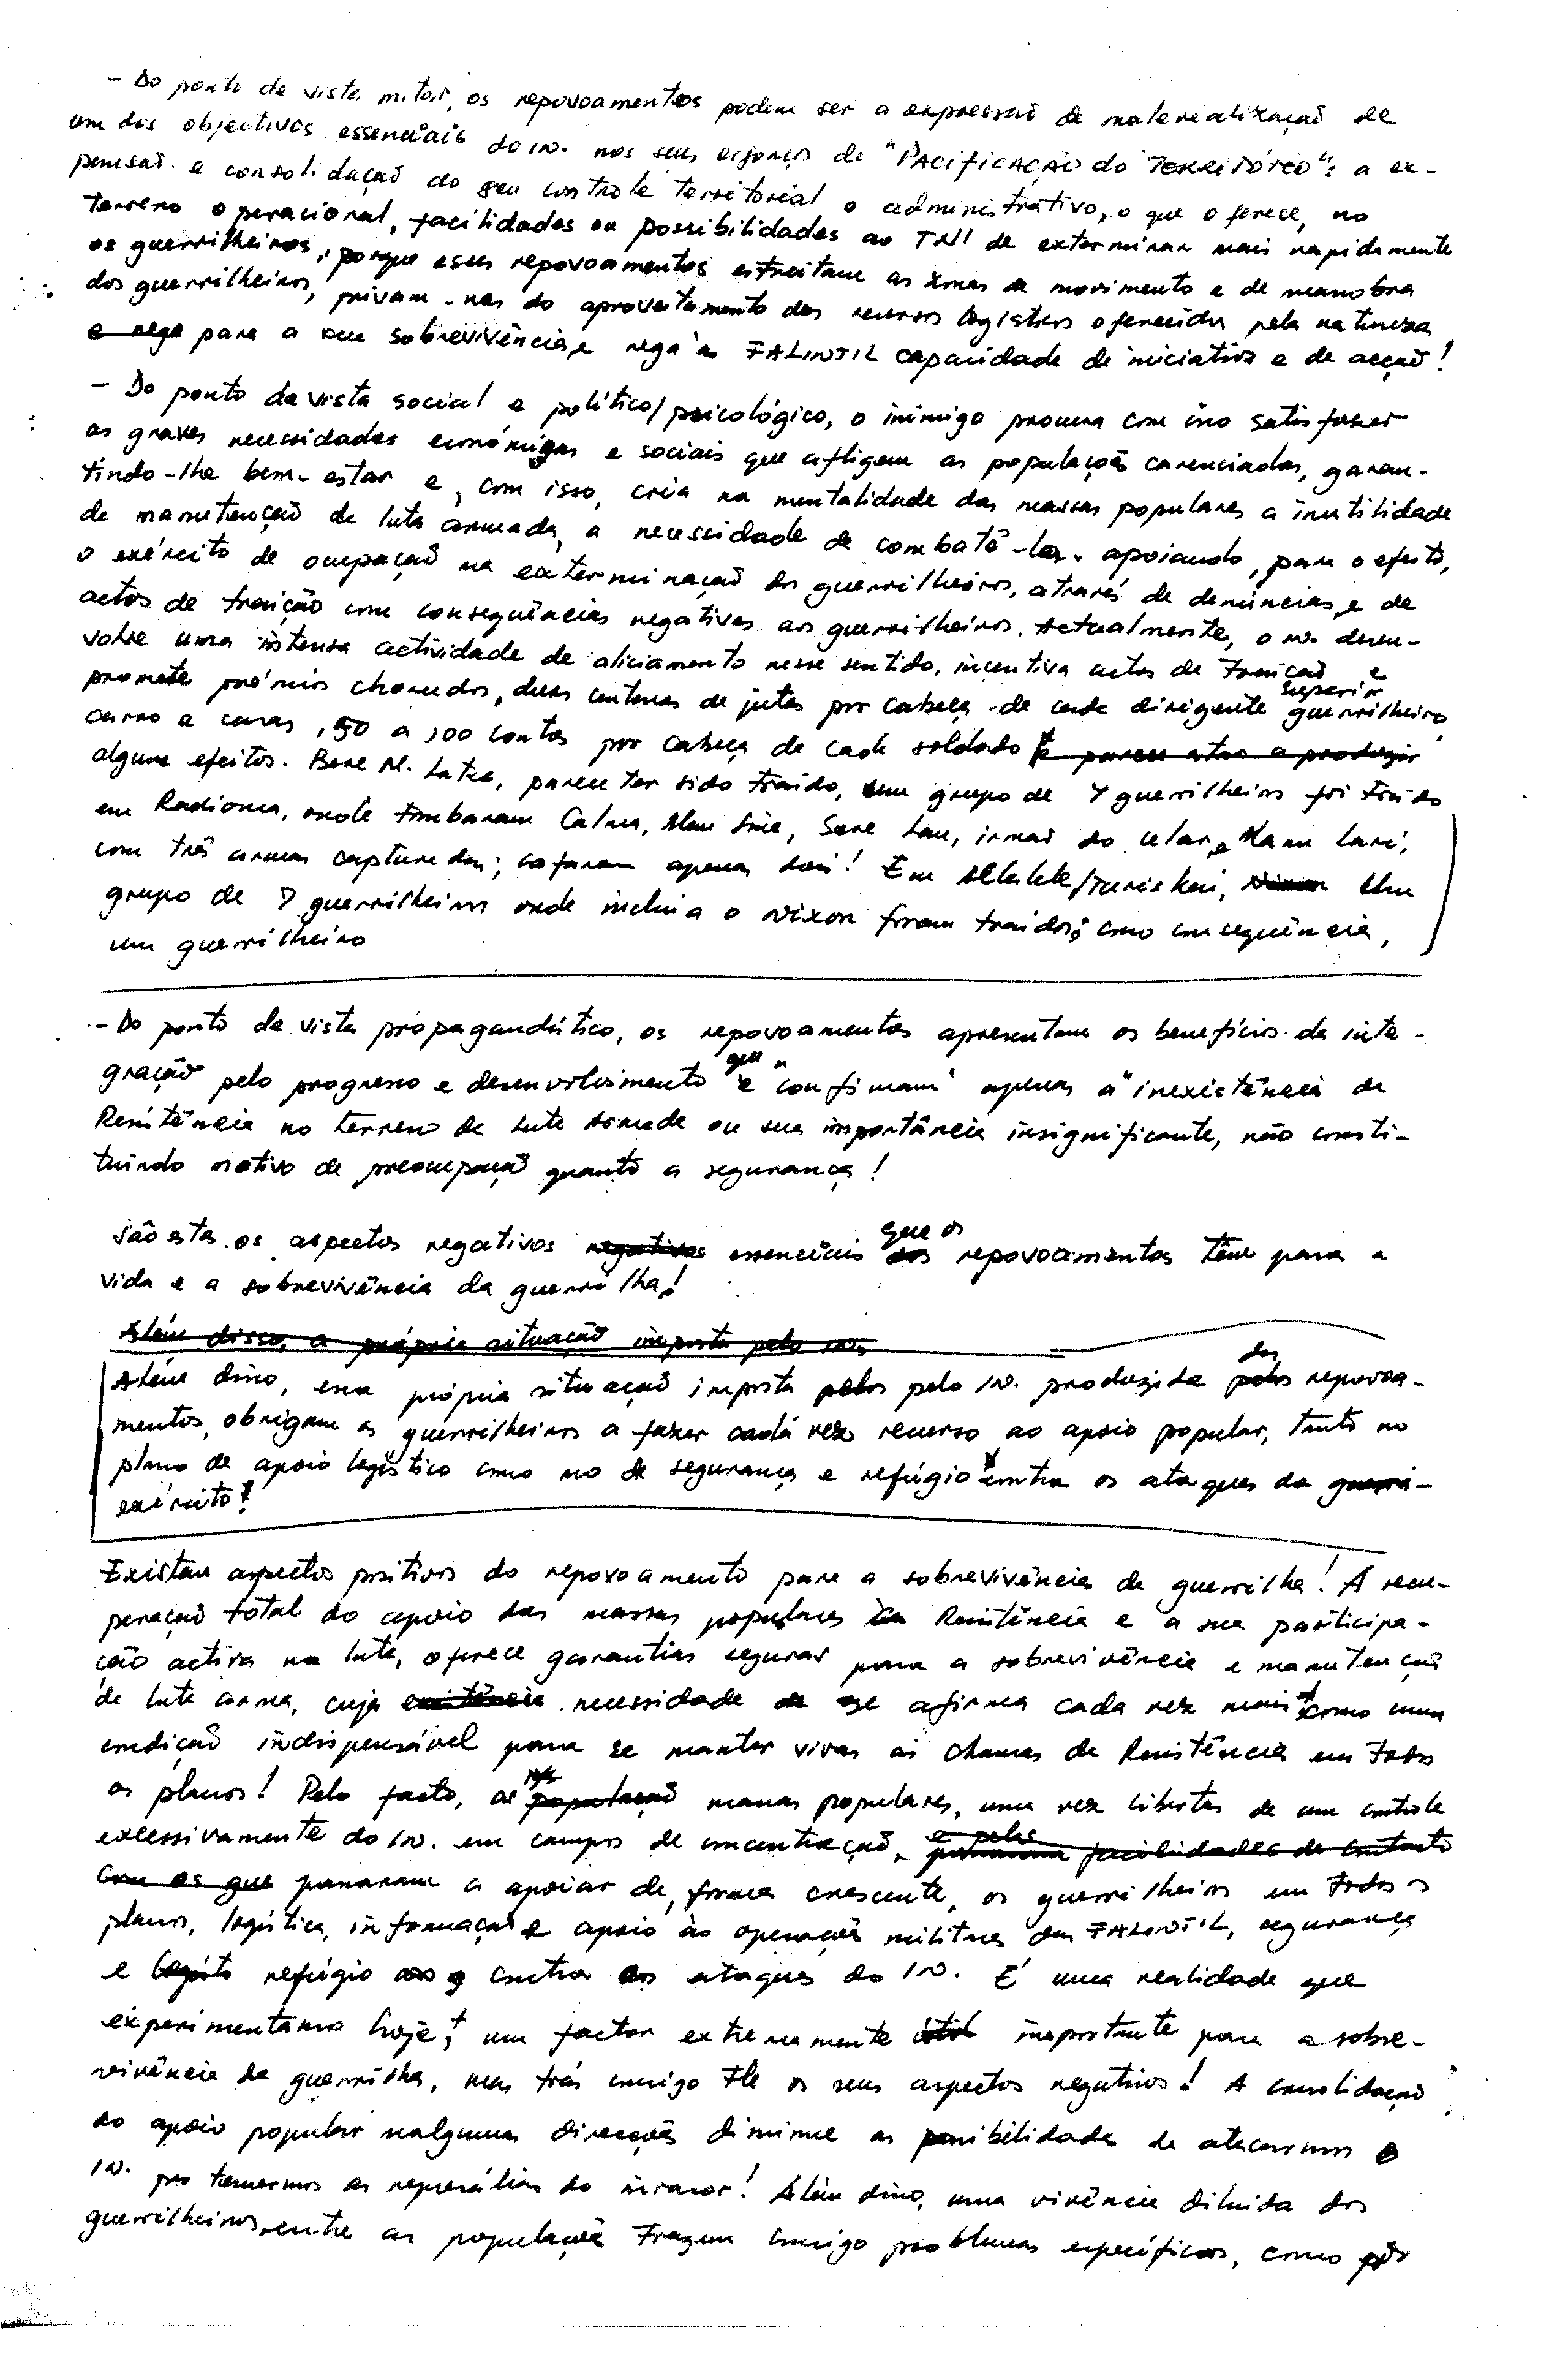 - Do ponto de vista militar, os repovoamentos podem ser a expressão de materialização de
um dos objectivos essenciais do IN. nos seus esforços de "PACIFICAÇÃO do TERRITÓRIO": a ex-
pansão e consolidação do seu controle territorial e administrativo, o que oferece, no
terreno operacional, facilidades ou possibilidades ao TNI de exterminar mais rapidamente
os guerrilheiros, porque esses repovoamentos estreitam as zonas de movimento e de manobra
dos guerrilheiros, privam-nas do aproveitamento dos recursos logísticos oferecidos pela natureza
e nega para a sua sobrevivência, e nega às FALINTIL capacidade de iniciativa e de acção!
- Do ponto de vista social e político/psicológico, o inimigo procura com isso satisfazer
as graves necessidades económicas e sociais que afligem as populações carenciadas, garan-
tindo-lhe bem-estar e, com isso, cria na mentalidade das massas populares a inutilidade
de manutenção de luta armada, a necessidade de combatê-la. apoiando, para o efeito,
o exército de ocupação na exterminação dos guerrilheiros, através de denúncias, e de
actos de traição com consequências negativas aos guerrilheiros. Actualmente, o IN. desen-
volve uma intensa actividade de aliciamento nesse sentido, incentiva actos de traição e
promete prémios chorudos, duas centenas de jutas por cabeça de cada dirigente superior guerrilheiro,
carro e casas, 50 a 100 contos por cabeça de cada soldado e parece estar a produzir
alguns efeitos. Bere M. Latka, parece ter sido traído, um grupo de 7 guerrilheiros foi traído
em Radioma, onde tombaram Calma, Mau Siri, Sere Lau, irmão do Ular, e Manu Lari,
com três armas capturadas; safaram apenas dois! Em /Turiskai, Nixon Um
grupo de 7 guerrilheiros onde incluia o Nixon foram traídos; como consequência,
um guerrilheiro
- Do ponto de vista propagandístico, os repovoamentos apresentam os benefícios da inte-
gração pelo progresso e desenvolvimento que e "confirmam" apenas a "inexistência da
Resistência no terreno da luta armada ou sua importância insignificante, não consti-
tuindo motivo de preocupação quanto a segurança!
São estes os aspectos negativos negativos essenciais que os dos repovoamentos têm para a
vida e a sobrevivência da guerrilha!
Além disso, a própria situação imposta pelo IN.
Além disso, essa própria situação imposta pelos pelo IN. produzida dos pelos repovoa-
mentos, obrigam os guerrilheiros a fazer cada vez recurso ao apoio popular, tanto no
plano de apoio logístico como no de segurança e refúgio contra os ataques da guerri-
exército!
Existem aspectos positivos do repovoamento para a sobrevivência da guerrilha! A recu-
peração total do apoio das massas populares à Resistência e a sua participa-
ção activa na luta, oferece garantias seguras para a sobrevivência e manutenção
de luta arma, cuja existência necessidade de se afirma cada vez mais como uma
condição indispensável para se manter vivas as chamas da Resistência em todos
os planos! Pelo facto, as população massas populares, uma vez libertas de um controle
excessivamente do IN. em campos de concentração, e pelas passaram facilidades de contacto
com os que passaram a apoiar de, forma crescente, os guerrilheiros em todos os
planos, logística, informação e apoio às operações militares das FALINTIL, segurança
e refúgio contra os ataques do IN. É uma realidade que
experimentamos hoje, um factor extremamente útil importante para a sobre-
vivência da guerrilha, mas trás consigo os seus aspectos negativos! A consolidação
do apoio popular nalgumas direcções diminue as possibilidades de atacarmos o
IN. por temermos as represálias do invasor! Além disso, uma vivência diluida dos
guerrilheiros entre as populações trazem consigo problemas específicos, como por